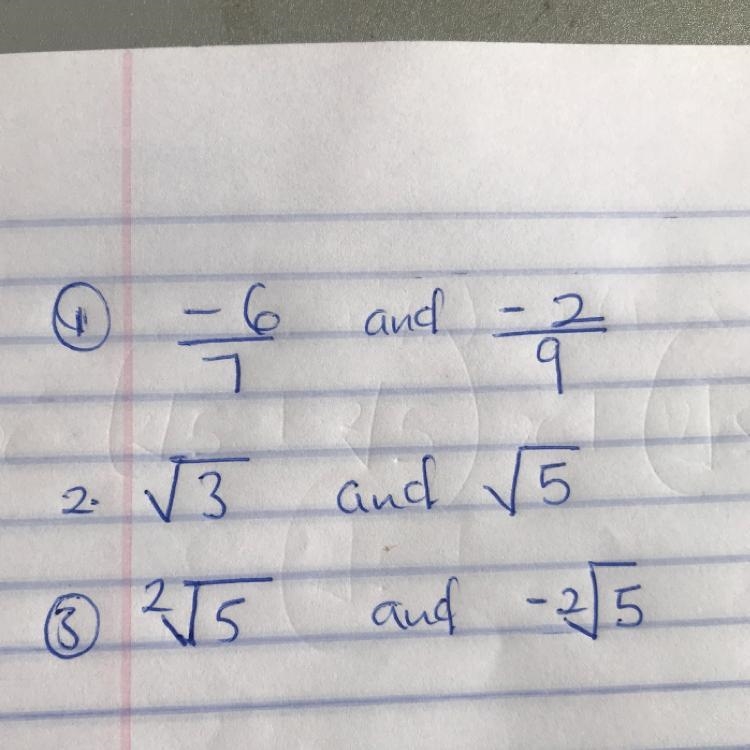 ① -6/7 and -2/9
2. √3 and √5
③ ²√5 and -2√5